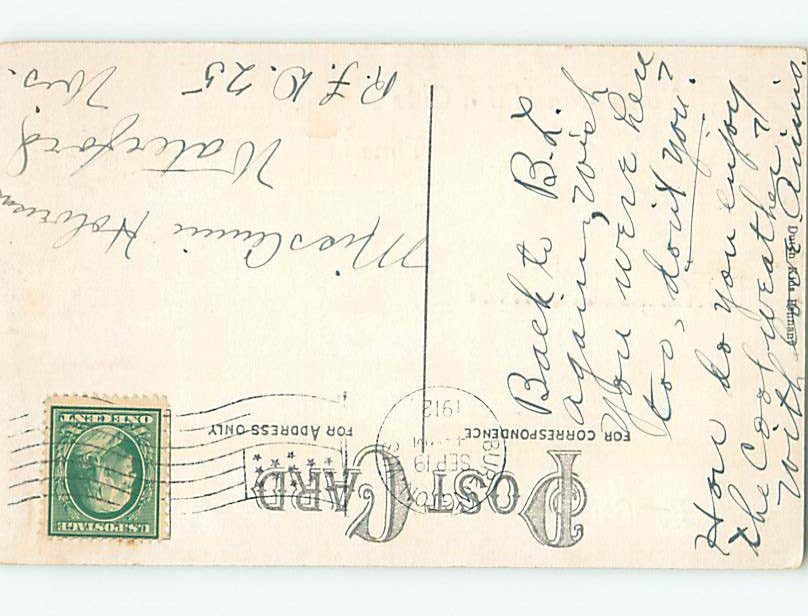 POST CARD
FOR CORRESPONDENCE
FOR ADDRESS ONLY
U.S. POSTAGE
ONE CENT
SEP 19
1912
Back to B.L.
again, wish
you were here
too, don't you?
How do you enjoy
the cool weather?
with
Miss Annie
Waterford
R.F.D. 25 Wis.